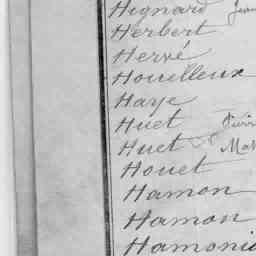 Hignard
Herbert
Hervé
Houelleux
Haye
Huet
Huet
Houet
Hamon
Hamon